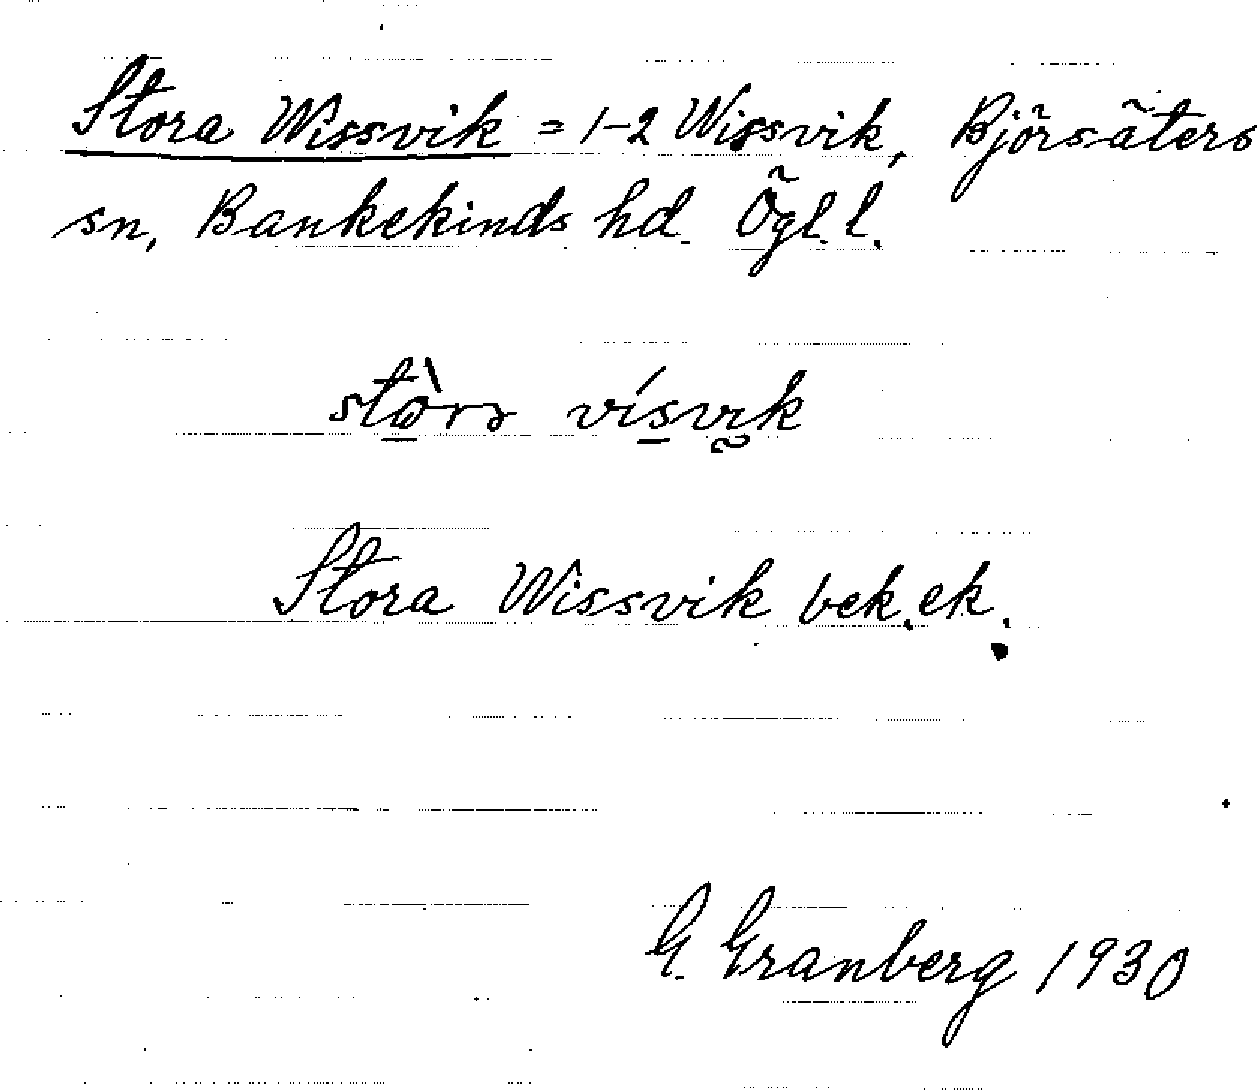 Stora Wissvik = 1-2 Wissvik, Björsäters
sn, Bankekinds hd. Ögl. l.
vísvik
Stora Wissvik bek. ek.
G. Granberg 1930